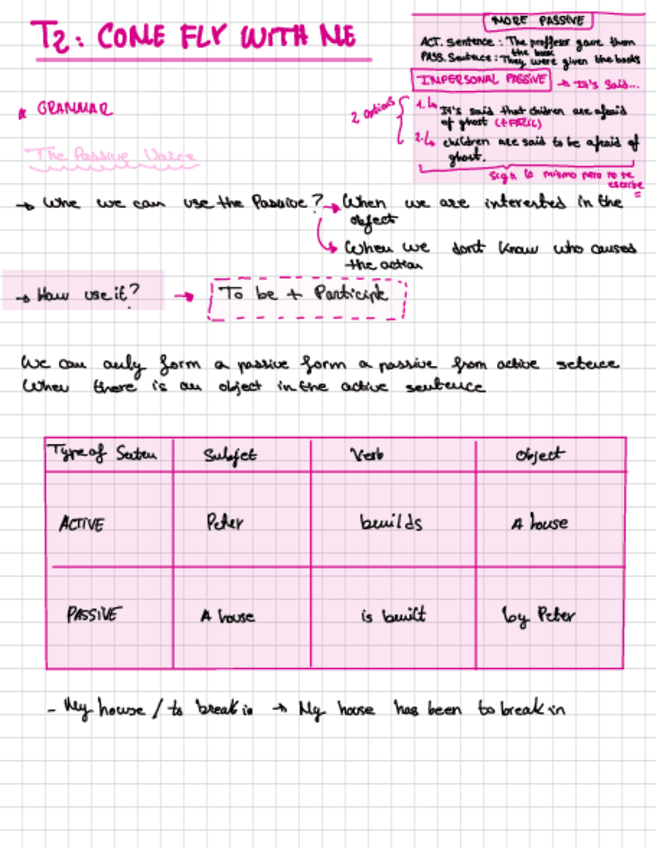 T2: COME FLY WITH ME
MORE PASSIVE
ACT. Sentence: The proffesor gave them the book
PASS. Sentence: They were given the books
IMPERSONAL PASSIVE → It's said...
2 options
1. ↳ It's said that children are afraid
of ghost (+FÁCIL)
2. ↳ children are said to be afraid of
ghost.
sign lo mismo pero no se
escribe =
* GRAMMAR
The Passive Voice
→ Whe we can use the Passive? → When we are interested in the
object
↳ When we dont know who caused
the action
→ How use it? → To be + Participle
We can only form a passive form a passive from active setence
When there is an object in the active sentence
Type of Senten Subjet Verb Object
ACTIVE Peter builds A house
PASSIVE A house is built by Peter
- My house / to break in → My house has been to break in